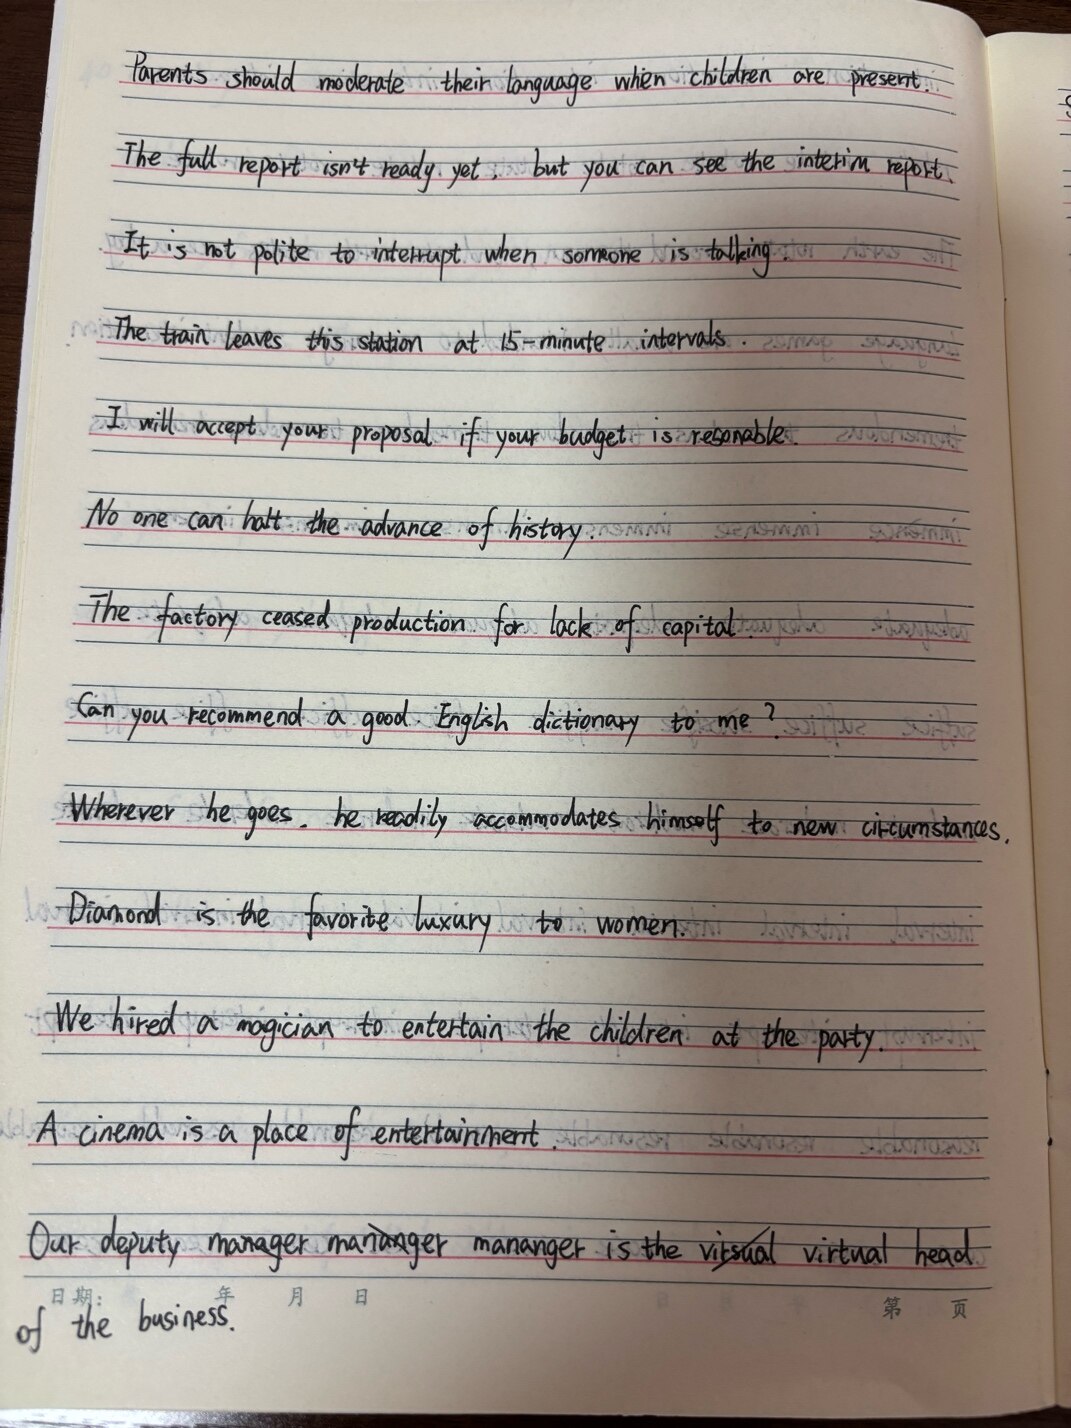 Parents should moderate their language when children are present.
The full report isn't ready yet, but you can see the interim report.
It is not polite to interrupt when someone is talking.
The train leaves this station at 15-minute intervals.
I will accept your proposal if your budget is resonable.
No one can halt the advance of history.
The factory ceased production for lack of capital.
Can you recommend a good English dictionary to me?
Wherever he goes, he readily accommodates himself to new circumstances.
Diamond is the favorite luxury to women.
We hired a magician to entertain the children at the party.
A cinema is a place of entertainment.
Our deputy manager mananger mananger is the virsual virtual head
日期: 年 月 日 第 页
of the business.